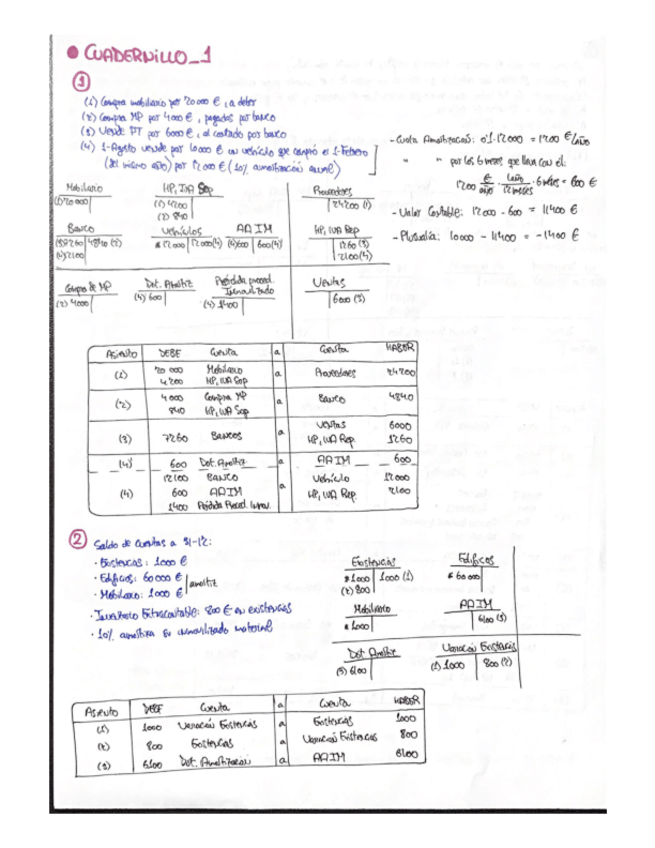 • CUADERNILLO_1
①
(1) Compra mobiliario por 20000 €, a deber
(2) Compra MP por 4000 €, pagados por banco
(3) Vende PT por 6000 €, al contado por banco
(4) 1-Agosto vende por 10000 € un vehículo que compró el 1-Febrero
(del mismo año) por 12000 € (10% amortización anual)
- Cuota Amortización: 0'1·12000 = 1200 €/año
" " por los 6 meses que lleva con él:
1200 €/año · 1 año/12 meses · 6 meses = 600 €
- Valor Contable: 12000 - 600 = 11400 €
- Plusvalía: 10000 - 11400 = -1400 €
Mobiliario
(1) 20000
HP, IVA Sop
(1) 4200
(2) 840
Proveedores
24200 (1)
Banco
(3) 7260 4840 (2)
(4) 12100
Vehículos
12000 12000 (4)
AAIM
(4) 600 600 (4')
HP, IVA Rep
1260 (3)
2100 (4)
Compra de MP
(2) 4000
Dot. Amortiz
(4') 600
Pérdida proced.
Inmovilizado
(4) 1400
Ventas
6000 (3)
Asiento DEBE Cuenta a Cuenta HABER
(1) 20 000 Mobiliario a Proveedores 24200
4200 HP, IVA Sop
(2) 4000 Compra MP a Banco 4840
840 HP, IVA Sop
(3) 7260 Bancos a Ventas 6000
HP, IVA Rep. 1260
(4') 600 Dot. Amortiz a AAIM 600
(4) 12100 BANCO a Vehículo 12000
600 AAIM HP, IVA Rep. 2100
1400 Pérdida Proced. Inmov.
②
Saldo de cuentas a 31-12:
· Existencias: 1000 €
· Edificios: 60000 €
· Mobiliario: 1000 €
amortiz
· Inventario Extracontable: 800 € en existencias
· 10% amortiza su inmovilizado material
Existencias
1000 1000 (1)
(2) 800
Edificios
60 000
Mobiliario
1000
AAIM
6100 (3)
Dot. Amortiz
(3) 6100
Variación Existencias
(1) 1000 800 (2)
Asiento DEBE Cuenta a Cuenta HABER
(1) 1000 Variación Existencias a Existencias 1000
(2) 800 Existencias a Variación Existencias 800
(3) 6100 Dot. Amortización a AAIM 6100